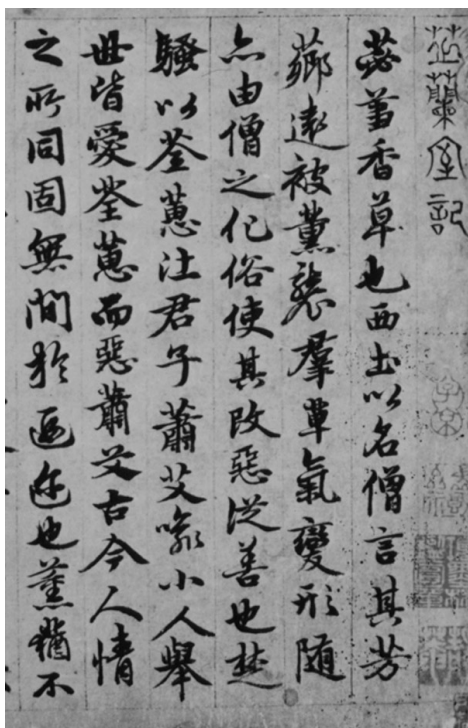 芝蘭室記
苾蒭香草也西土以名僧言其芳
薌遠被薰襲羣草氣變形隨
亦由僧之化俗使其改惡從善也楚
騷以荃蕙注君子蕭艾喻小人舉
世皆愛荃蕙而惡蕭艾古今人情
之所同固無間於遐迩也薰蕕不